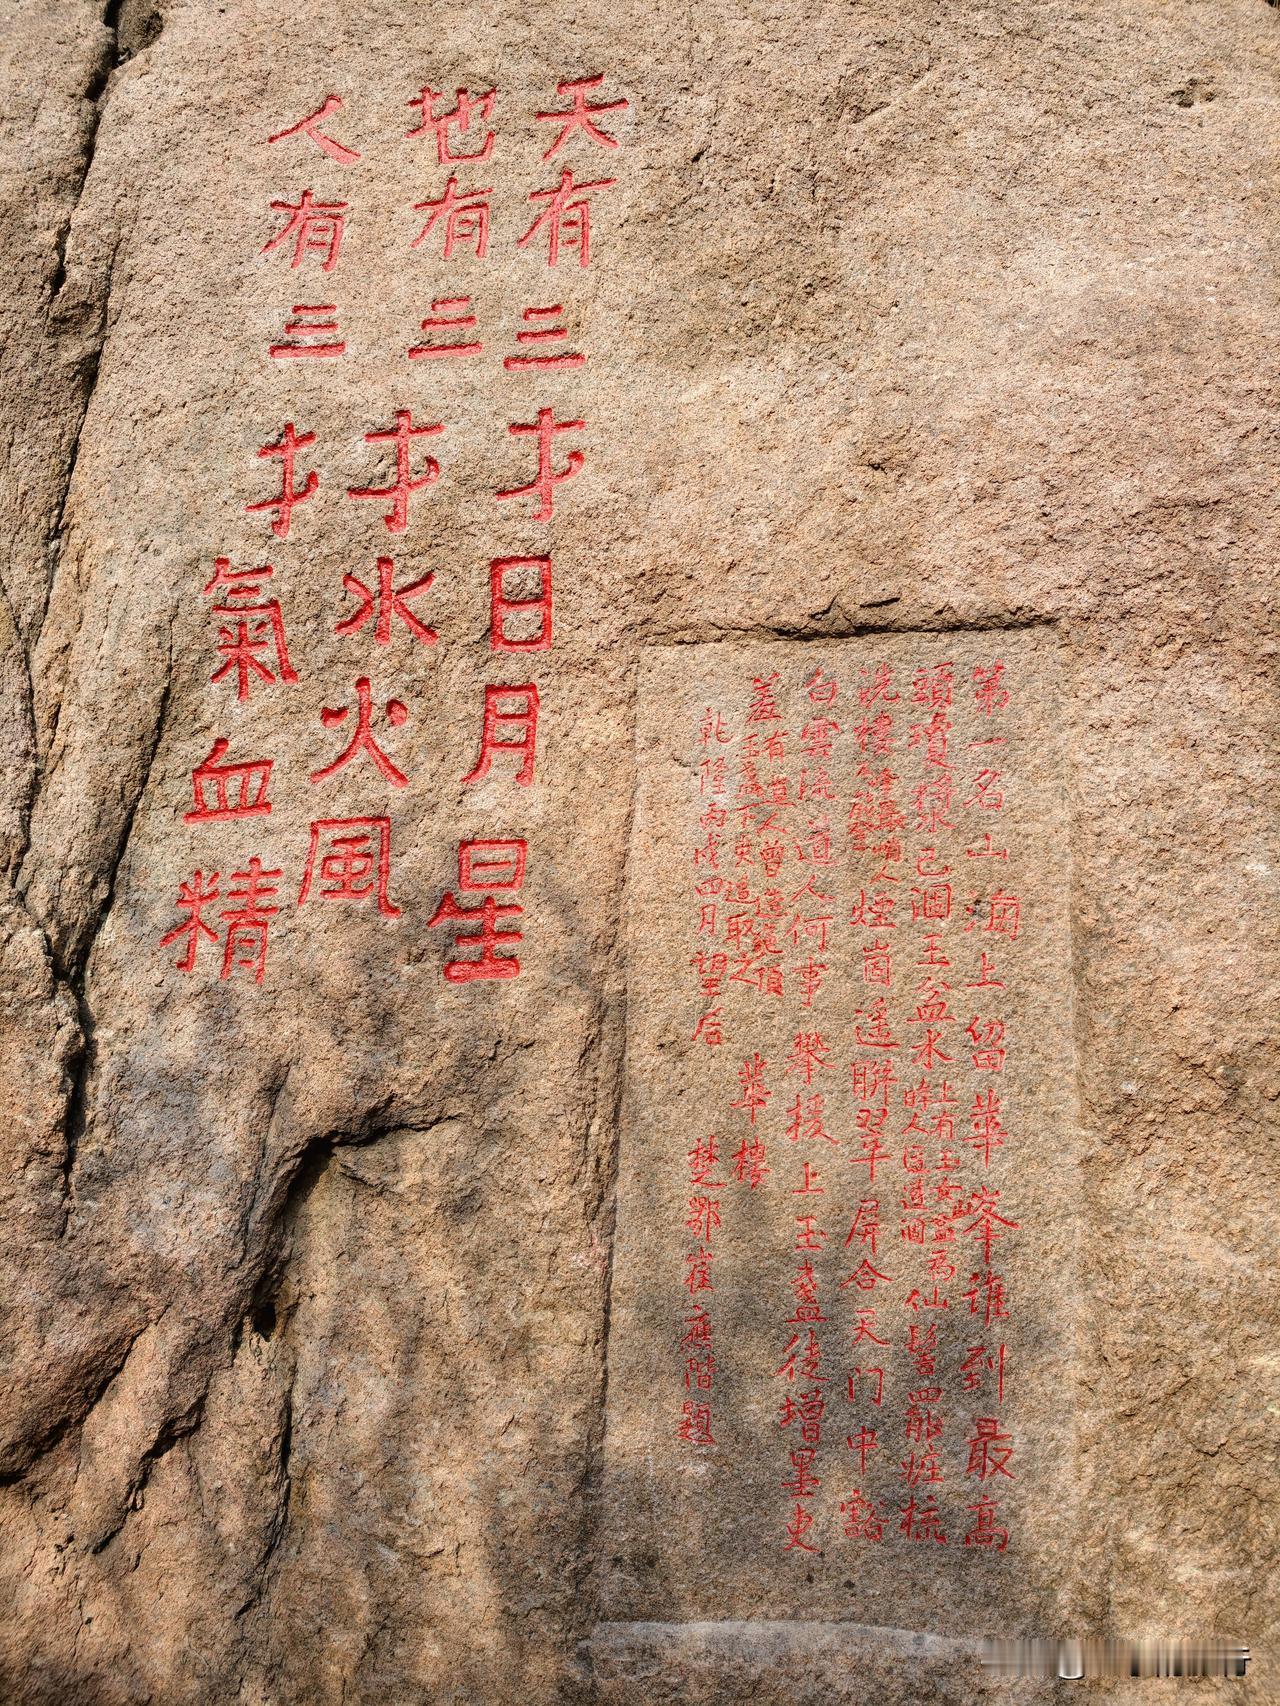 天有三才日月星
地有三才水火風
人有三才氣血精
第一名山海上留華峯誰到最高
頭瓊漿已涸玉盆水
上有玉女盆為
仙髻罷粧梳
洗樓
煙崮遥聯翠屏合天门中豁
白雲流道人何事攀援上玉盞徒增墨吏
羞
有道人曾造絕頂
玉盞下吏追取之
華樓
乾隆丙戌四月望后 楚鄂崔應階題